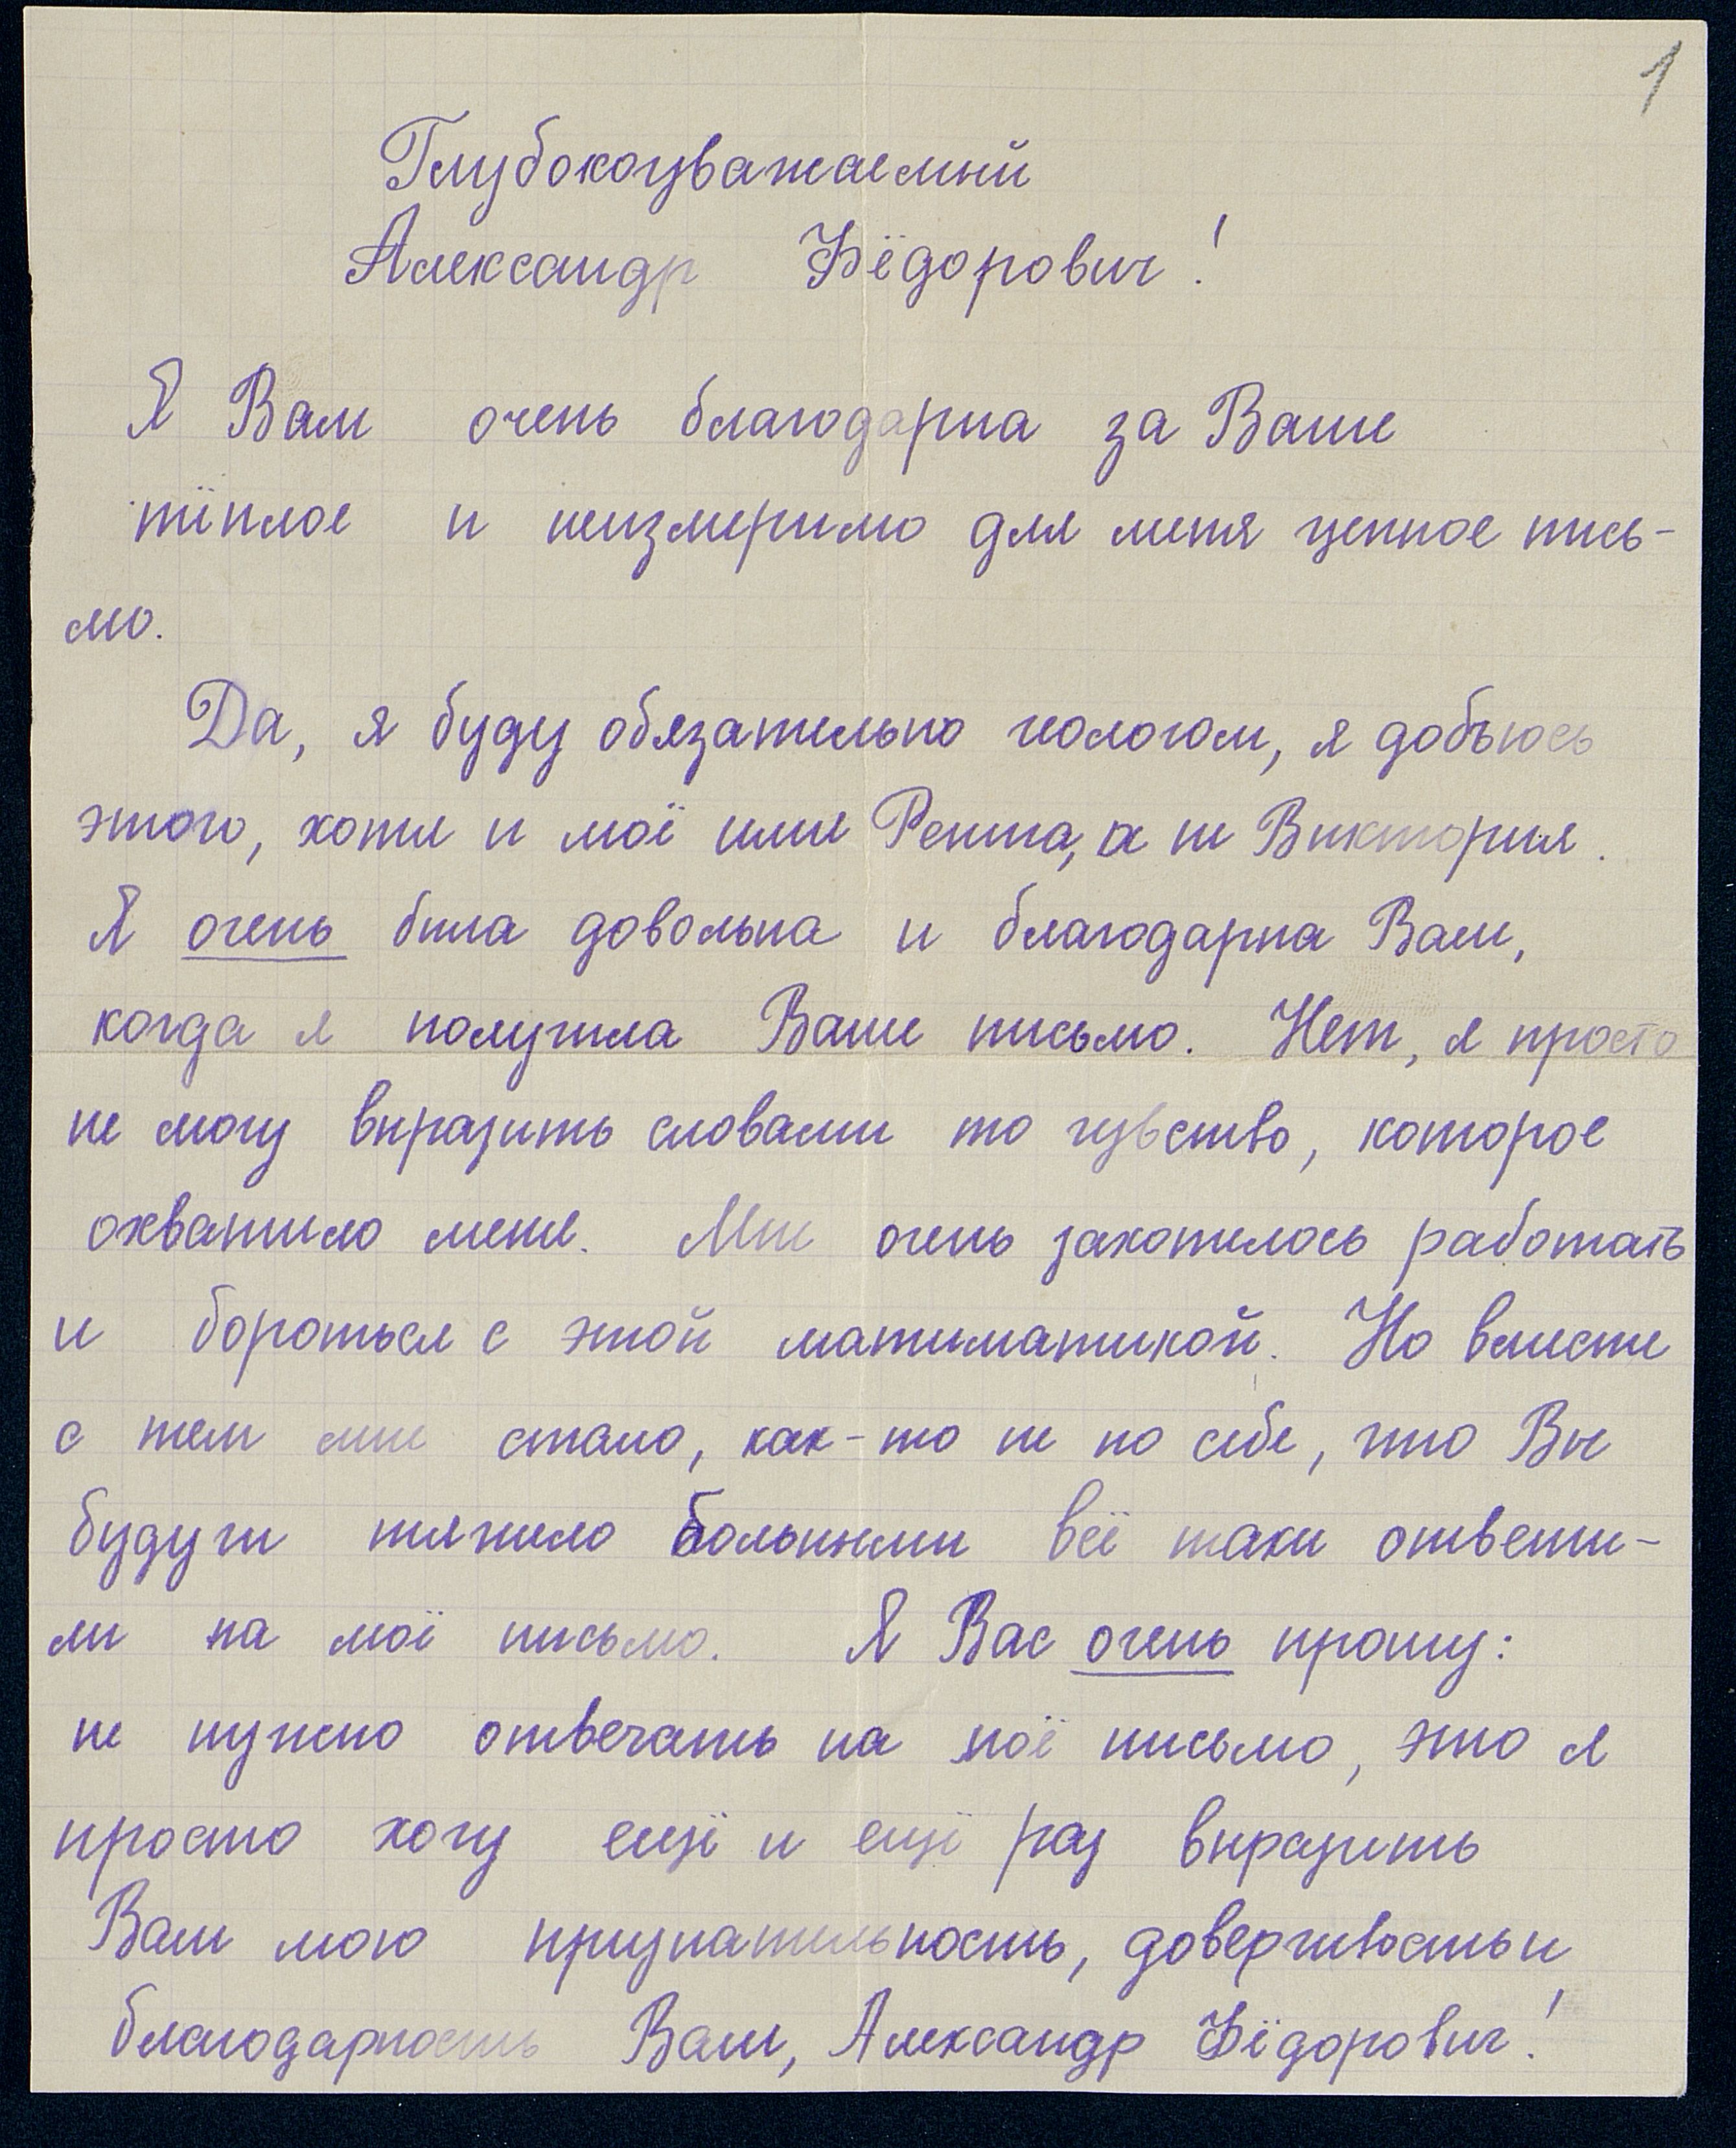 1
Глубокоуважаемый
Александр Фёдорович!
Я Вам очень благодарна за Ваше
тёплое и неизмеримо для меня ценное пись-
мо.
Да, я буду обязательно геологом, я добъюсь
этого, хотя и моё имя Рента, а не Виктория.
Я очень была довольна и благодарна Вам,
когда я получила Ваше письмо. Нет, я просто
не могу выразить словами то чувство, которое
охватило меня. Мне очень захотелось работать
и бороться с этой математикой. Но вместе
с тем мне стало, как-то не по себе, что Вы
будучи тяжело больными всё таки ответи-
ли на моё письмо. Я Вас очень прошу:
не нужно отвечать на моё письмо, это я
просто хочу ещё и ещё раз выразить
Вам мою признательность, доверчивость и
благодарность Вам, Александр Фёдорович!